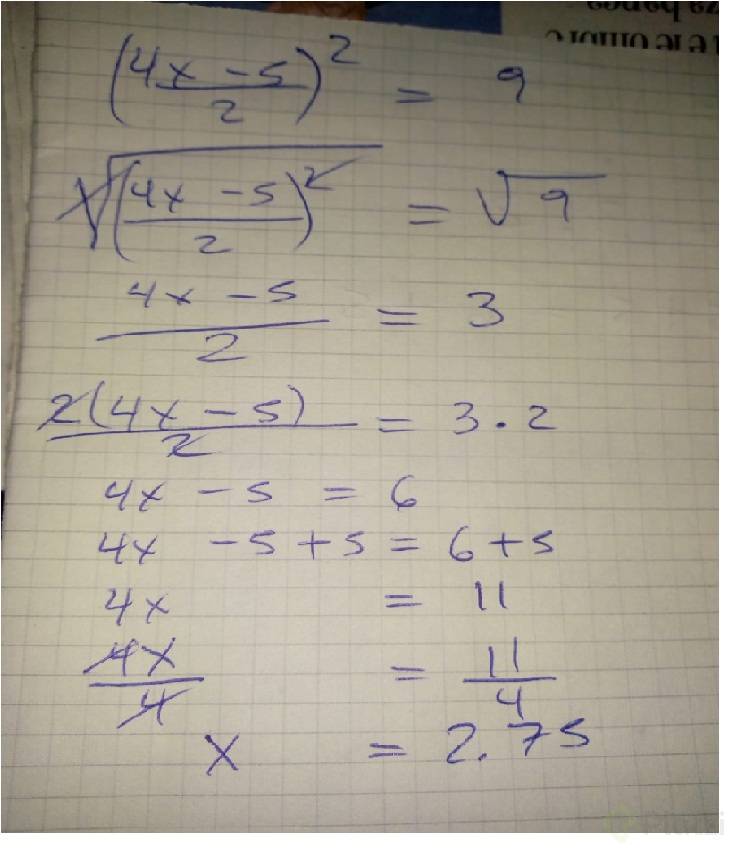 (4x - 5 / 2)² = 9
√(4x - 5 / 2)² = √9
4x - 5 / 2 = 3
2(4x - 5) / 2 = 3 · 2
4x - 5 = 6
4x - 5 + 5 = 6 + 5
4x = 11
4x / 4 = 11 / 4
x = 2.75